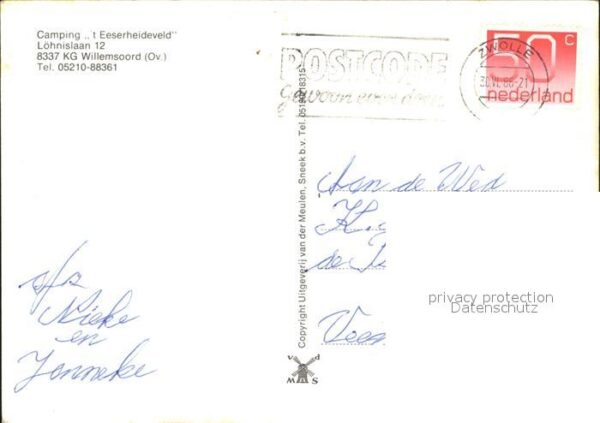 Camping „'t Eeserheideveld"
Löhnislaan 12
8337 KG Willemsoord (Ov.)
Tel. 05210-88361
POSTCODE
gewoon even doen
ZWOLLE
50 c
nederland
Copyright Uitgeverij van der Meulen, Sneek b.v. Tel.
Aan de Wed
K.
de
privacy protection
Datenschutz
afz
Nieke
en
Janneke
v d
M S